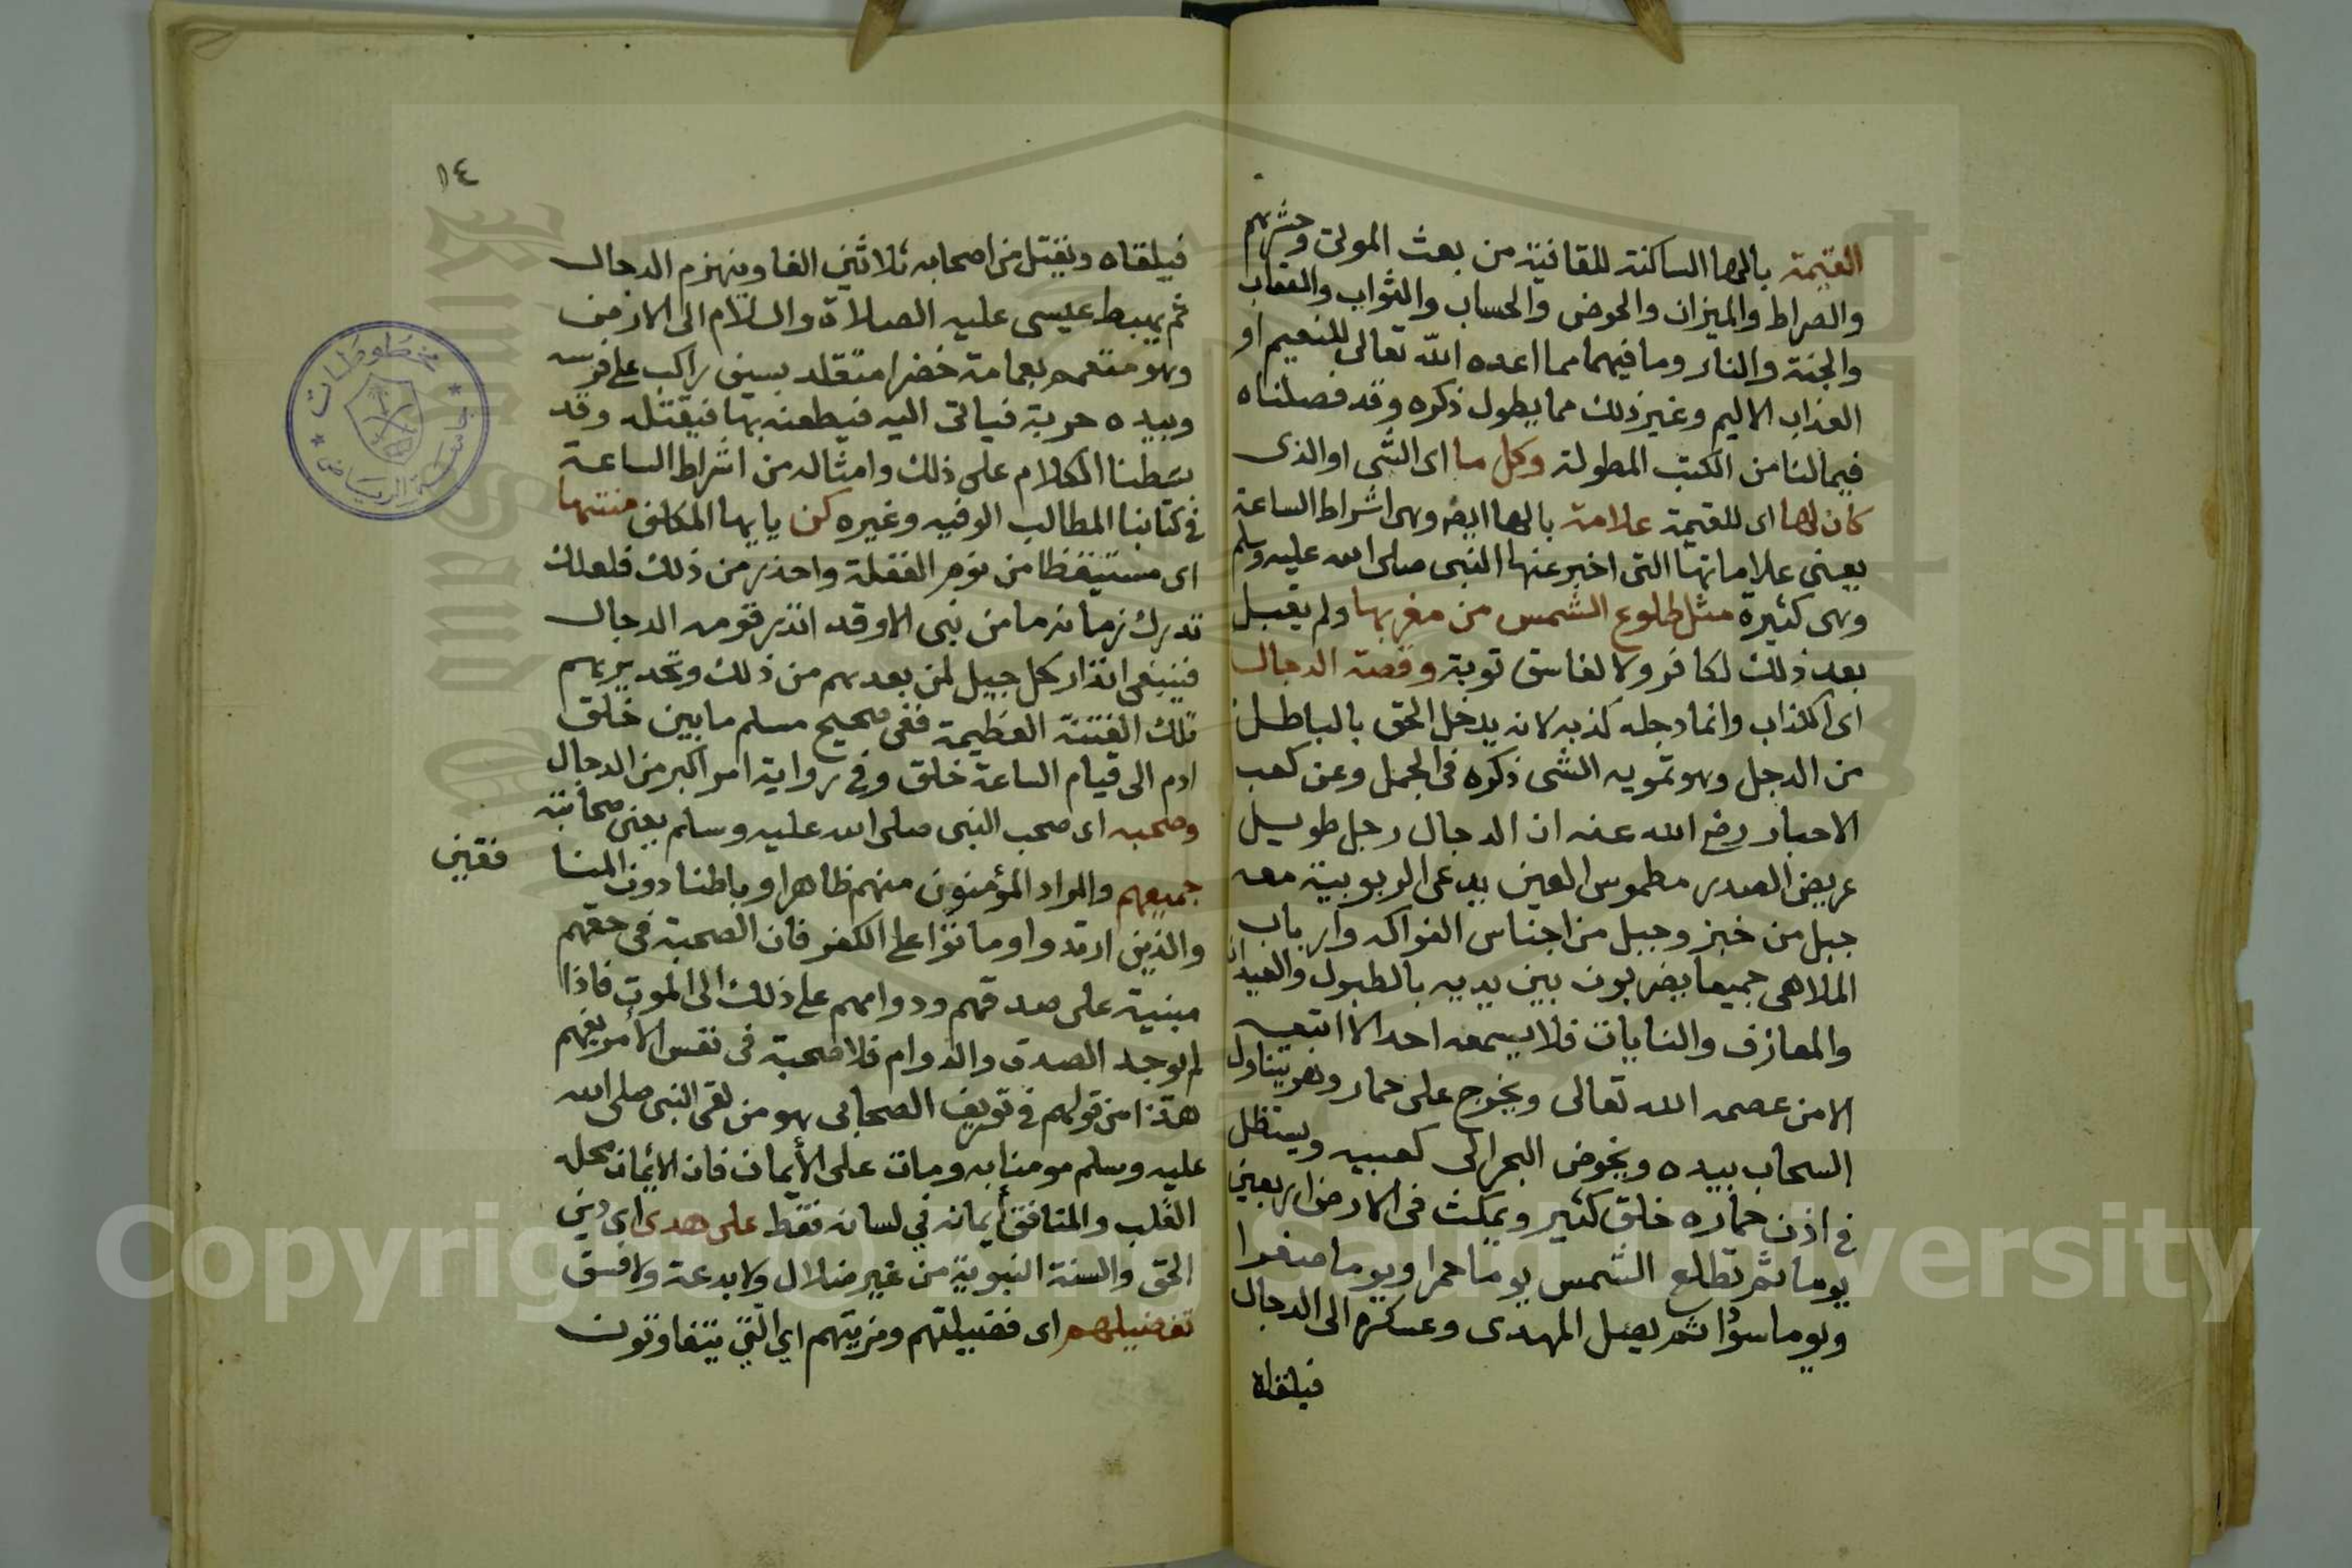 القيمة بالهاء الساكنة للقافية من بعث الموتى وحشرهم
والصراط والميزان والحوض والحساب والثواب والعقاب
والجنة والنار وما فيهما مما اعده الله تعالى للنعيم او
العذاب الاليم وغير ذلك مما يطول ذكره وقد فصلناه
فيما لنا من الكتب المطولة وكل ما اى الشى او الذى
كان لها اى للقيمة علامة بالهاء ايضا وهى اشراط الساعة
يعنى علاماتها التى اخبر عنها النبى صلى الله عليه وسلم
وهى كثيرة مثل طلوع الشمس من مغربها ولم يقبل
بعد ذلك لكافر ولا لفاسق توبة وقصة الدجال
اى الكذاب وانما دجله كذبه لانه يدخل الحق بالباطل
من الدجل وهو تمويه الشى ذكره فى المجمل وعن كعب
الاحبار رضى الله عنه ان الدجال رجل طويل
عريض الصدر مطموس العين يدعى الربوبية معه
جبل من خبز وجبل من اجناس الفواكه وارباب
الملاهى جميعا يضربون بين يديه بالطبول والعيدان
والمعازف والنايات فلا يسمعه احد الا اتبعه
الا من عصمه الله تعالى ويخرج على حمار وهو يتناول
السحاب بيده ويخوض البحر الى كعبيه ويستظل
فى اذن حماره خلق كثير ويمكث فى الارض اربعين
يوما ثم تطلع الشمس يوما حمرا ويوما صفرا
ويوما سودا ثم يصل المهدى وعسكره الى الدجال
فيلقاه
١٤
فيلقاه ويقتل من اصحابه ثلاثين الفا وينهزم الدجال
ثم يهبط عيسى عليه الصلاة والسلام الى الارض
وهو متعمم بعمامة خضرا متقلد بسيف راكب على فرسه
وبيده حربة فياتى اليه فيطعنه بها فيقتله وقد
بسطنا الكلام على ذلك وامثاله من اشراط الساعة
فى كتابنا المطالب الوفيه وغيره كن يايها المكلف منتبها
اى مستيقظا من نوم الغفلة واحذر من ذلك فلعلك
تدرك زمانه ما من نبى الا وقد انذر قومه الدجال
فينبغى انذار كل جيل لمن بعدهم من ذلك وتحذيرهم
تلك الفتنة العظيمة ففى صحيح مسلم ما بين خلق
ادم الى قيام الساعة خلق وفى رواية امر اكبر من الدجال
وصحبه اى صحب النبى صلى الله عليه وسلم يعنى صحابته
جميعهم والمراد المؤمنون منهم ظاهرا وباطنا دون المنا
فقين
والذين ارتدوا وماتوا على الكفر فان الصحبة فى حقهم
مبنية على صدقهم ودوامهم على ذلك الى الموت فاذا
لم يوجد الصدق والدوام فلا صحبة فى نفس الأمر يفهم
هذا من قولهم فى تعريف الصحابى هو من لقى النبى صلى الله
عليه وسلم مومنا به ومات على الأيمان فان الايمان محله
القلب والمنافق أيمانه في لسانه فقط على هدى اى دين
الحق والسنة النبوية من غير ضلال ولا بدعة ولا فسق
تفضيلهم اى فضيلتهم ومزيتهم اي التي يتفاوتون
مخطوطات
جامعة الرياض
Copyright © King Saud University